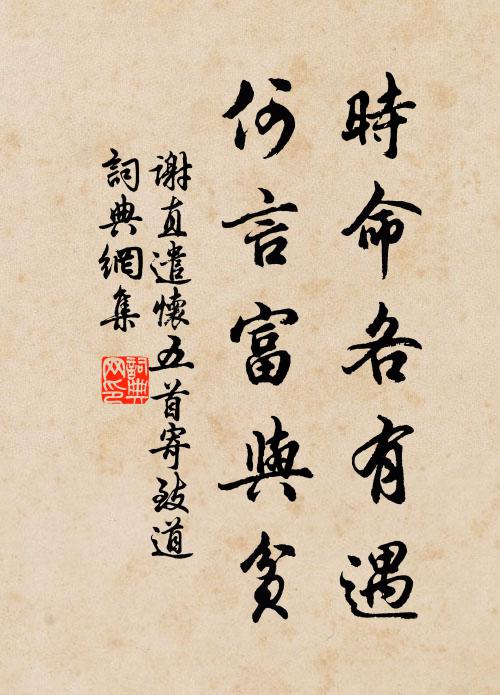 時命各有遇
何言富與貧
谢直遣懷五首寄致道
詞典網集
詞典
网印